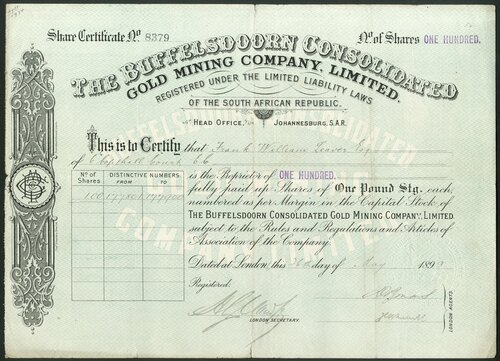 Share Certificate No 8379
No. of Shares ONE HUNDRED.
THE BUFFELSDOORN CONSOLIDATED
GOLD MINING COMPANY, LIMITED.
REGISTERED UNDER THE LIMITED LIABILITY LAWS
OF THE SOUTH AFRICAN REPUBLIC.
HEAD OFFICE, JOHANNESBURG, S.A.R.
This is to Certify that Frank William Seaver Esq
of Copthall Court EC
No of Shares
DISTINCTIVE NUMBERS
FROM TO
100
is the Proprietor of ONE HUNDRED.
fully paid up Shares of One Pound Stg. each,
numbered as per Margin in the Capital Stock of
THE BUFFELSDOORN CONSOLIDATED GOLD MINING COMPANY, LIMITED
subject to the Rules and Regulations and Articles of
Association of the Company.
Dated at London, this day of May 1899
Registered:
LONDON SECRETARY.
LONDON AGENTS